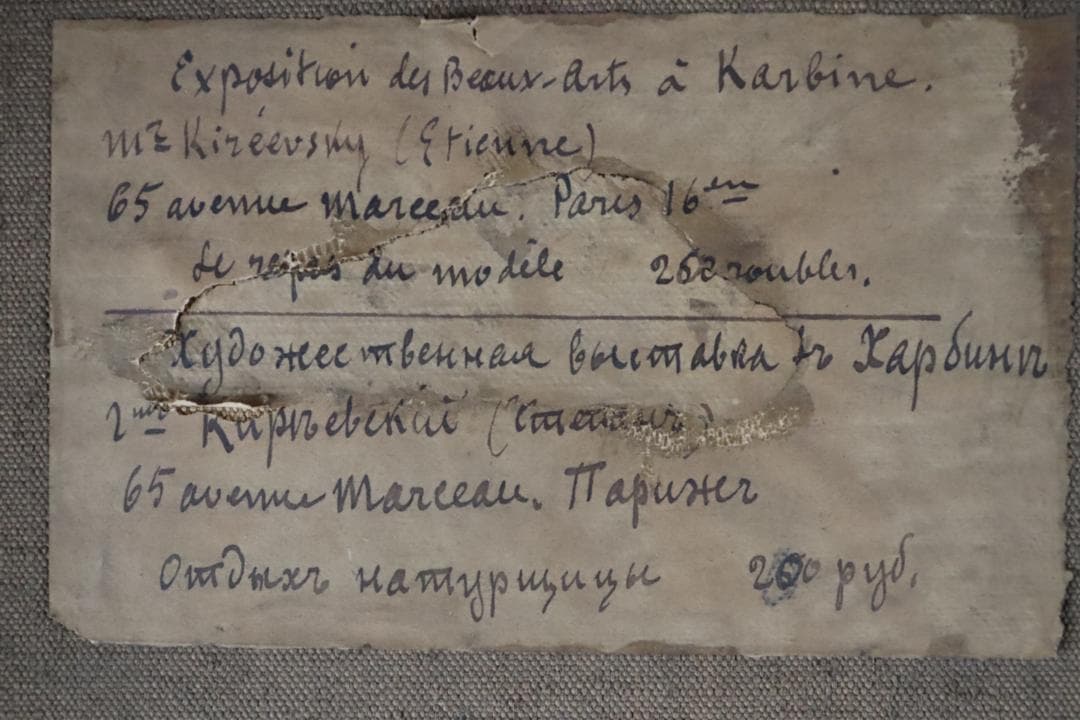 Exposition des Beaux-Arts à Karbine.
Mr Kiréevsky (Etienne)
65 avenue Marceau. Paris 16 en
Le repos du modèle roubles.
Художественная выставка въ Харбинѣ
Кирѣевскій (Степанъ)
65 avenue Marceau. Парижъ
Отдыхъ натурщицы 200 руб.